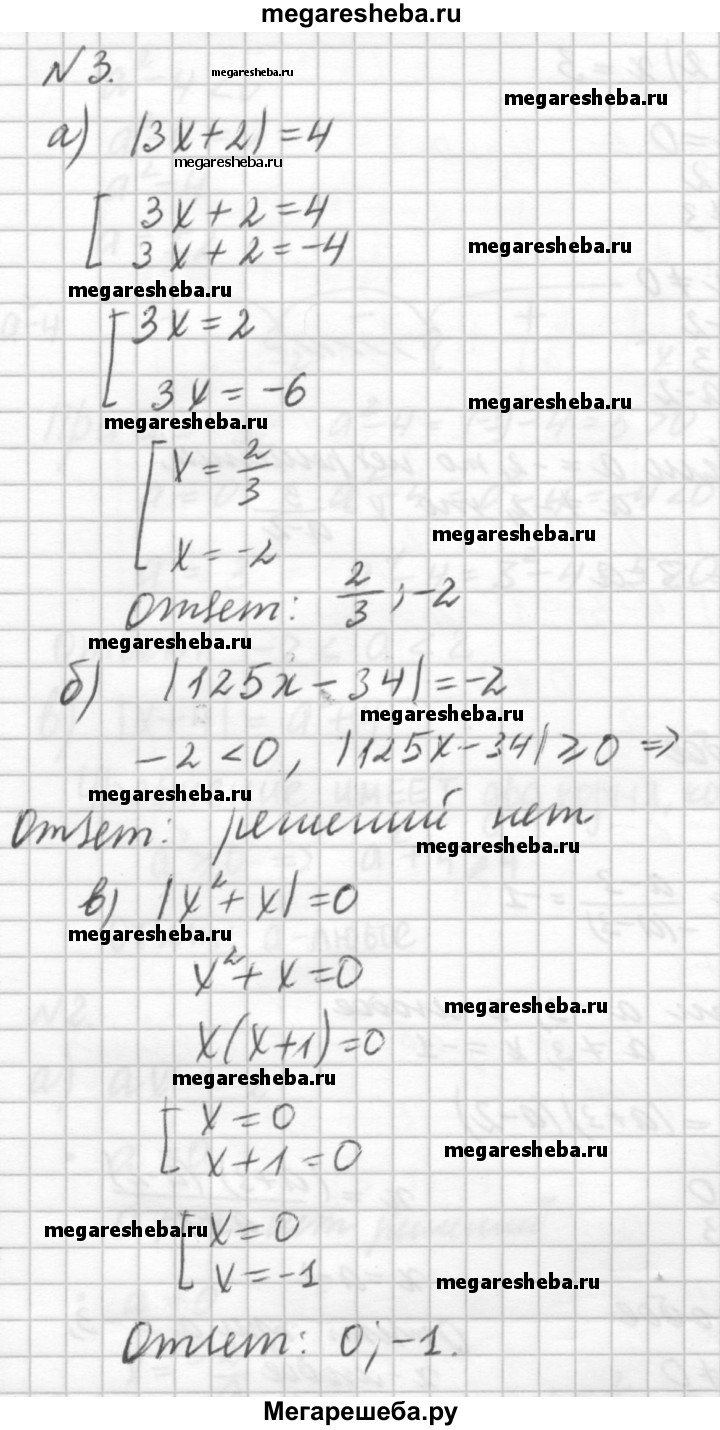 megaresheba.ru
N 3.
megaresheba.ru
megaresheba.ru
а) |3x+2|=4
megaresheba.ru
3x+2=4
3x+2=-4
megaresheba.ru
megaresheba.ru
3x=2
3x=-6
megaresheba.ru
megaresheba.ru
x=2/3
megaresheba.ru
x=-2
Ответ: 2/3; -2
megaresheba.ru
б) |125x-34|=-2
megaresheba.ru
-2<0, |125x-34|⩾0 ⇒
megaresheba.ru
Ответ: решений нет
megaresheba.ru
в) |x²+x|=0
megaresheba.ru
x²+x=0
megaresheba.ru
x(x+1)=0
megaresheba.ru
x=0
x+1=0
megaresheba.ru
megaresheba.ru
x=0
x=-1
megaresheba.ru
Ответ: 0; -1.
Мегарешеба.ру